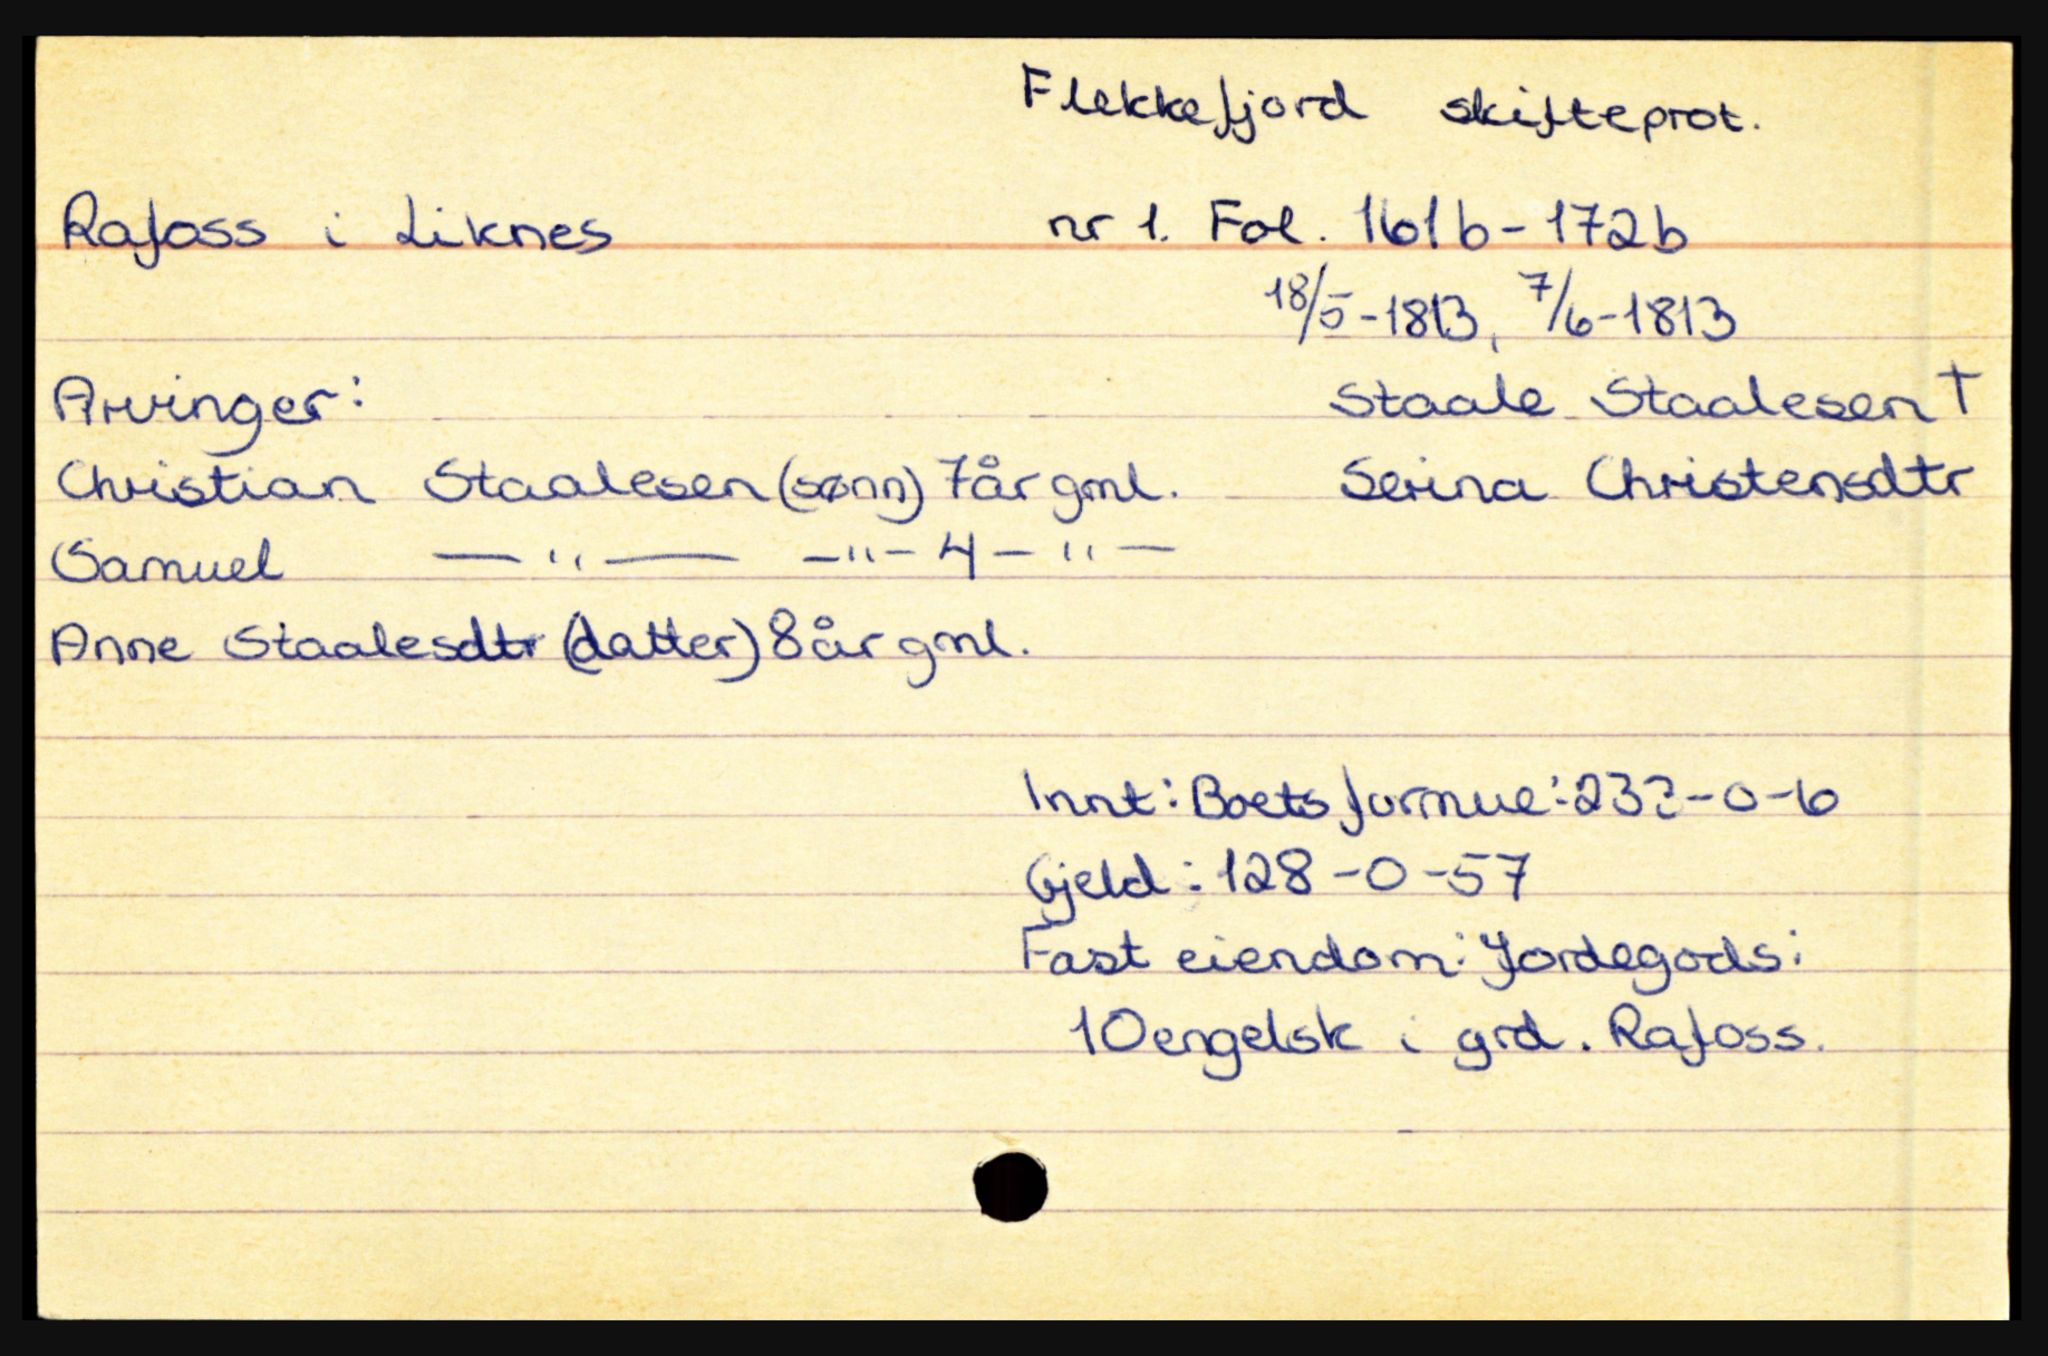 Flekkefjord skifteprot.
Rafoss i Liknes
nr 1. Fol. 161b-172b
18/5-1813, 7/6-1813
Arvinger:
Staale Staalesen †
Christian Staalesen (sønn) 7år gml.
Serina Christensdtr
Samuel —"— -"- 4 -"-
Anne Staalesdtr (datter) 8år gml.
Innt: Boets formue: 232-0-6
Gjeld: 128-0-57
Fast eiendom: Jordegods:
10engelsk i grd. Rafoss.